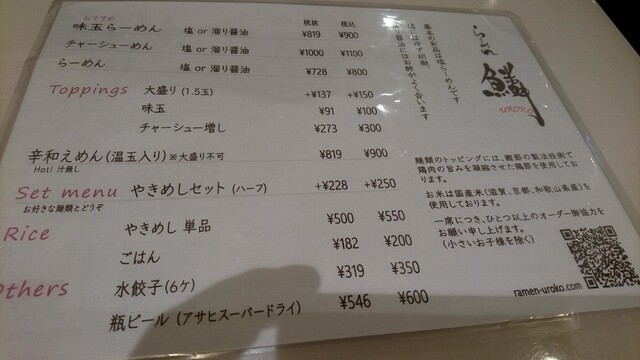 おすすめ
税抜 税込
味玉らーめん 塩 or 溜り醤油 ¥819 ¥900
チャーシューめん 塩 or 溜り醤油 ¥1000 ¥1100
らーめん 塩 or 溜り醤油 ¥728 ¥800
Toppings 大盛り (1.5玉) +¥137 +¥150
味玉 ¥91 ¥100
チャーシュー増し ¥273 ¥300
辛和えめん(温玉入り) ※大盛り不可 ¥819 ¥900
Hot! 汁無し
Set menu やきめしセット (ハーフ) +¥228 +¥250
お好きな麺類とどうぞ
Rice やきめし 単品 ¥500 ¥550
ごはん ¥182 ¥200
Others 水餃子(6ケ) ¥319 ¥350
瓶ビール (アサヒスーパードライ) ¥546 ¥600
らーめん 鱗
UROKO
基本のお品は塩らーめんです
塩にはゆず胡椒、
溜り醤油にはお酢がよく合います
麺類のトッピングには、鰹節の製法技術で
鶏肉の旨みを凝縮させた鶏節を使用してお
ります。
お米は国産米(滋賀、京都、和歌山県産)を
使用しております。
一席につき、ひとつ以上のオーダー御協力を
お願い申し上げます。
(小さいお子様を除く)
ramen-uroko.com